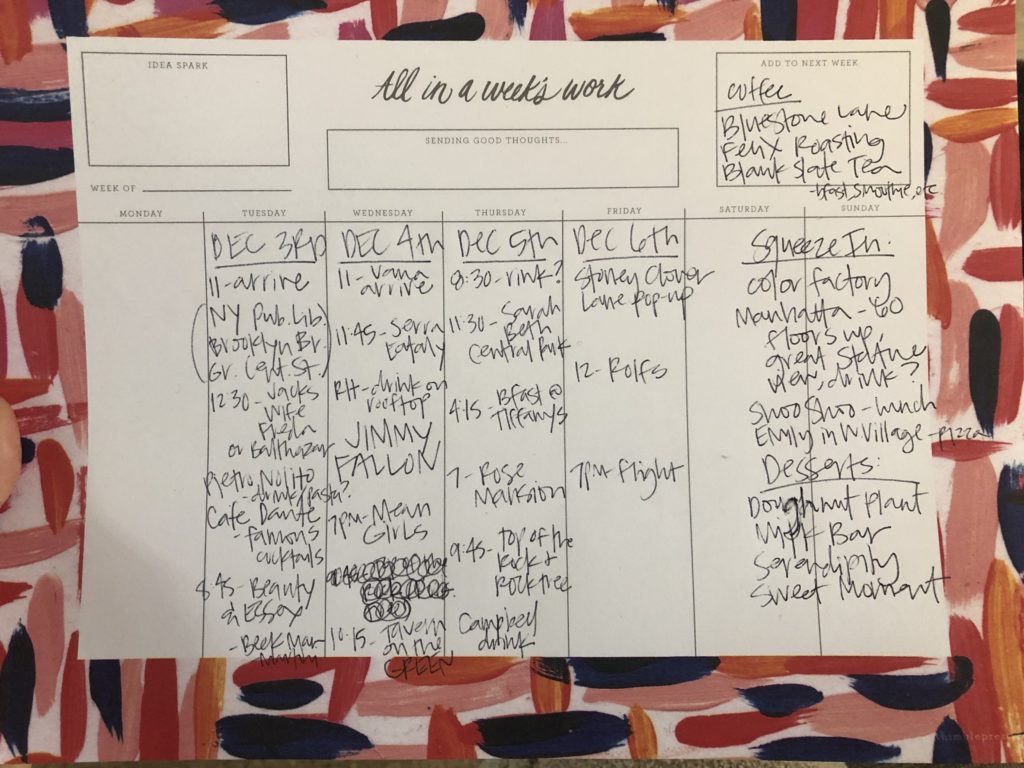 IDEA SPARK
All in a week's work
SENDING GOOD THOUGHTS...
ADD TO NEXT WEEK
coffee
Bluestone Lane
Felix Roasting
Blank Slate Tea
-bfast, smoothie, etc
WEEK OF
MONDAY
TUESDAY
WEDNESDAY
THURSDAY
FRIDAY
SATURDAY
SUNDAY
DEC 3RD
11-arrive
(NY Pub. Lib.)
Brooklyn Br.
Gr. Cent. St.)
12:30-Jacks
Wife
Freda
or Balthazar
Pietro Nolito
-drink/pasta?
Cafe Dante
-famous
cocktails
8:45-Beauty
& Essex
-Beekman
DEC 4th
11-Vana
arrive
11:45-Serra
Eataly
RH-drink on
rooftop
JIMMY
FALLON
7pm-Mean
Girls
10:15-Tavern
on the
GREEN
Dec 5th
8:30-rink?
11:30-Sarah
Beth
Central Park
4:15-Bfast @
Tiffanys
7-Rose
Mansion
9:45-top of the
Rock &
Rock tree
Campbell
drink
Dec 6th
Stoney Clover
Lane pop-up
12-Rolfs
7pm-Flight
Squeeze In:
color factory
Manhatta-60
floors up,
great
view, drink?
Shoo Shoo-lunch
Emily in W Village-pizza
Desserts:
Doughnut Plant
Milk Bar
Serendipity
Sweet Moment